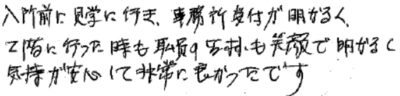 入所前に見学に行き、事務所受付が明かるく、
2階に行った時も職員の方村も笑顔で明かるく
気持が安心して非常に良かったです